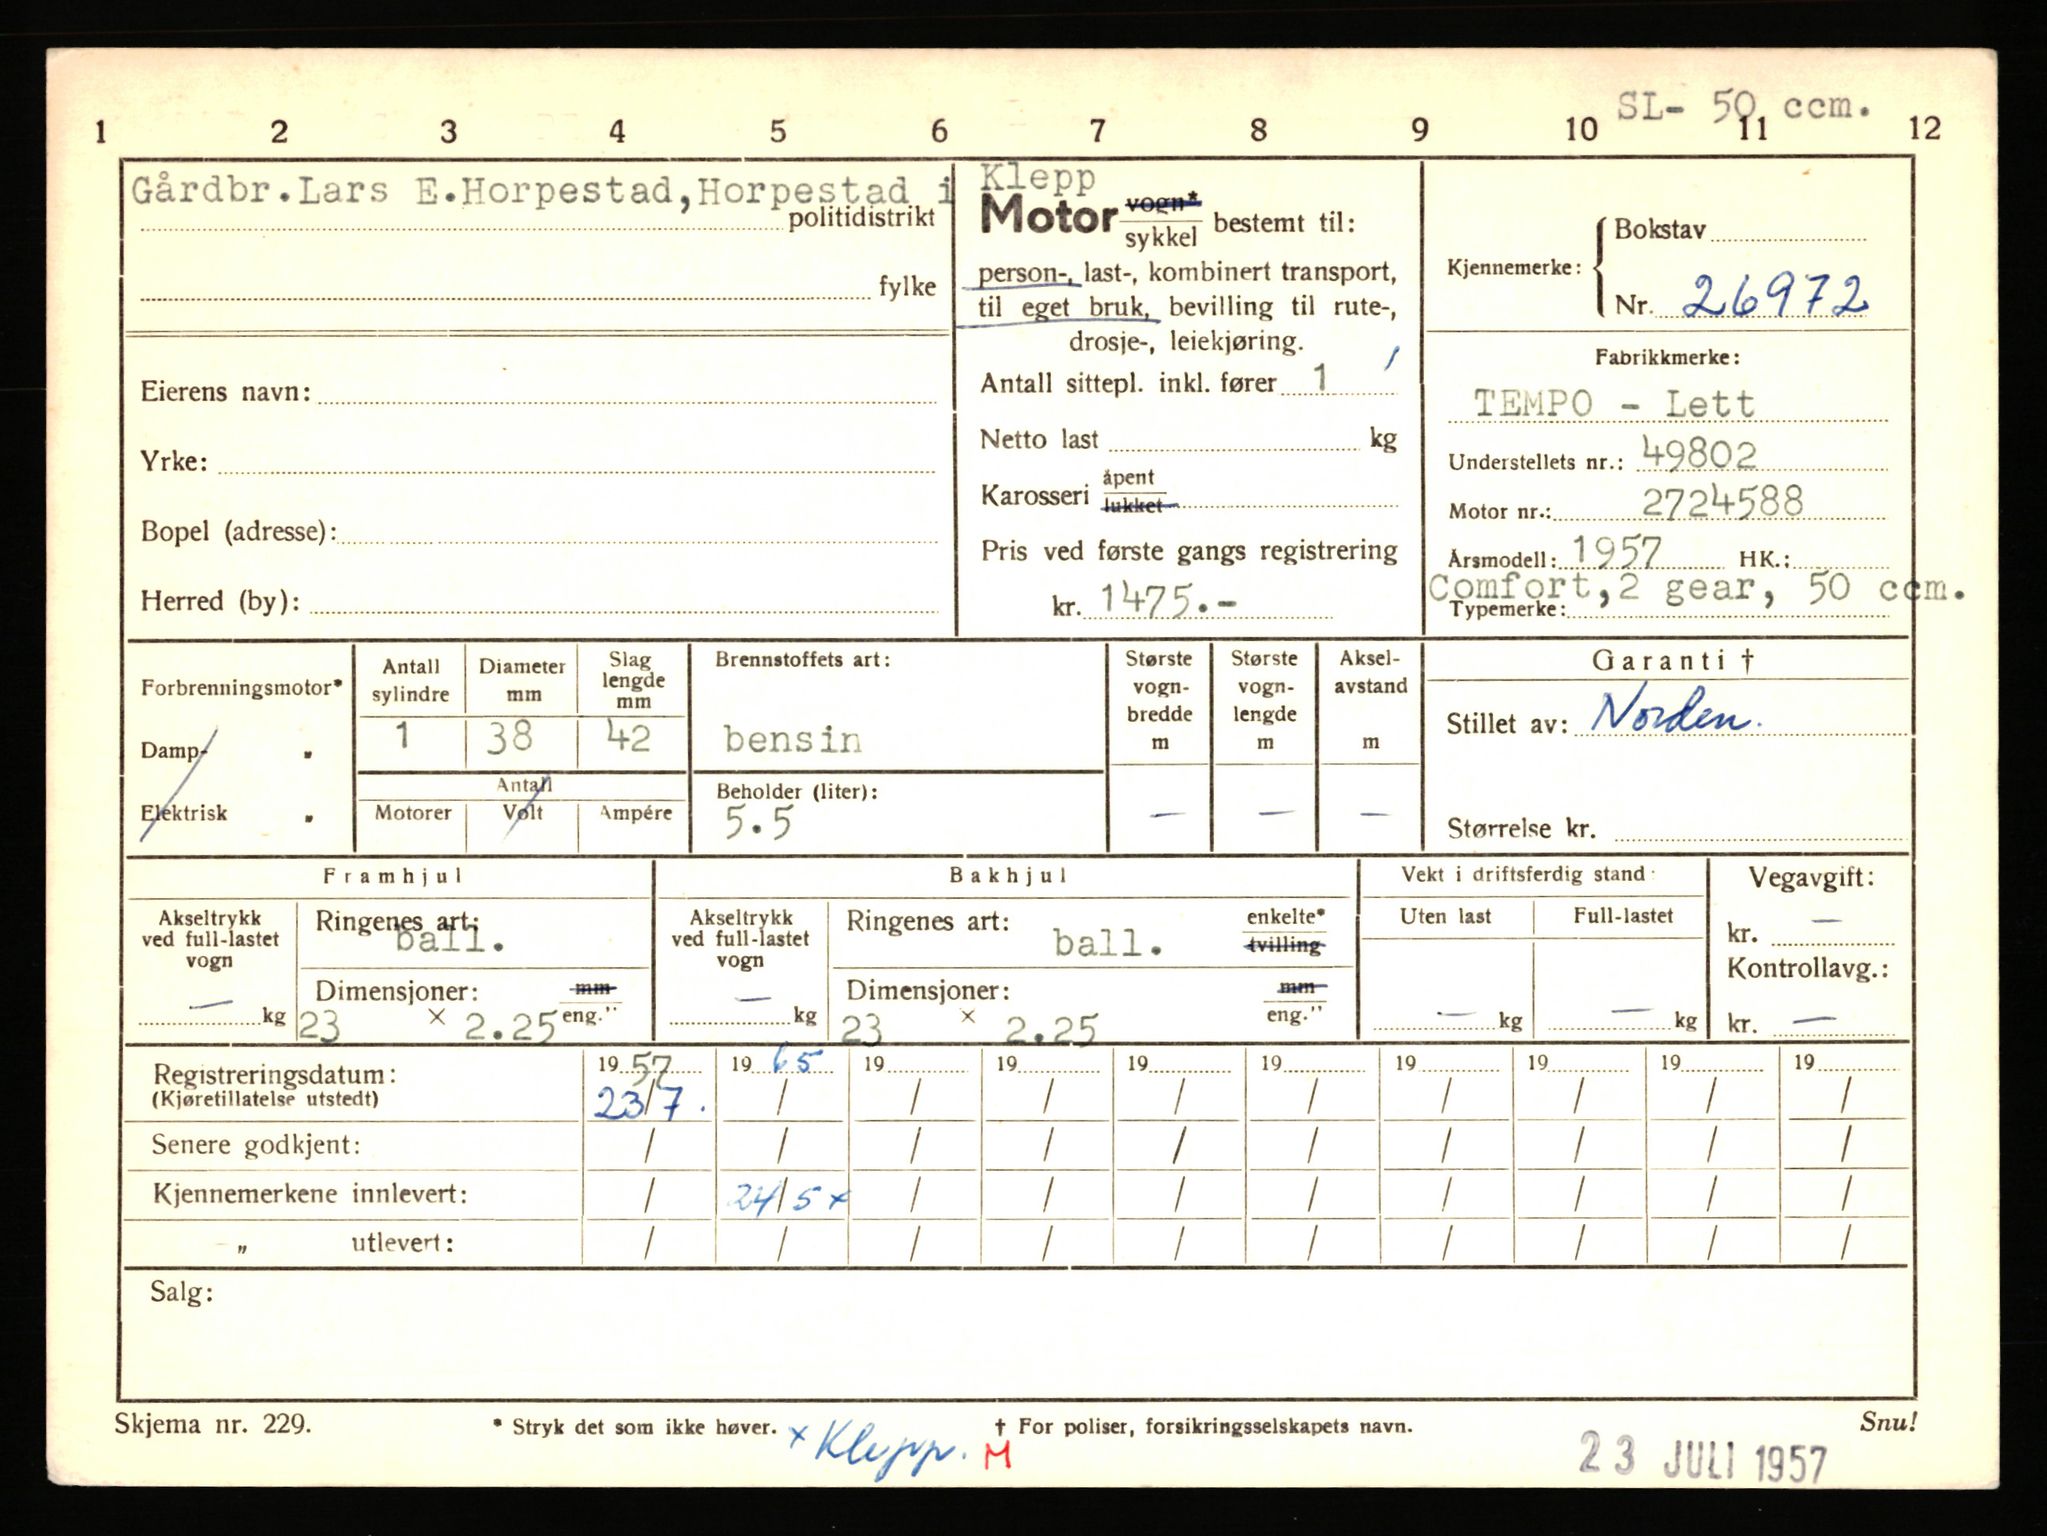 SL- 50 ccm.
1 2 3 4 5 6 7 8 9 10 11 12
Gårdbr.Lars E.Horpestad,Horpestad i Klepp
politidistrikt
fylke
Eierens navn:
Yrke:
Bopel (adresse):
Herred (by):
Motor vogn*
sykkel bestemt til:
person-, last-, kombinert transport,
til eget bruk, bevilling til rute-,
drosje-, leiekjøring.
Antall sittepl. inkl. fører 1
Netto last kg
Karosseri åpent
lukket
Pris ved første gangs registrering
kr. 1475.-
Kjennemerke: Bokstav
Nr. 26972
Fabrikkmerke:
TEMPO - Lett
Understellets nr.: 49802
Motor nr.: 2724588
Årsmodell: 1957 HK.:
Comfort,2 gear, 50 ccm.
Typemerke:
Forbrenningsmotor*
Damp- „
Elektrisk „
Antall sylindre Diameter mm Slag lengde mm
1 38 42
Antall
Motorer Volt Ampére
Brennstoffets art:
bensin
Beholder (liter):
5.5
Største vogn-bredde m
—
Største vogn-lengde m
—
Aksel-avstand m
—
Garanti †
Stillet av: Norden.
Størrelse kr.
Framhjul
Akseltrykk
ved full-lastet
vogn
— kg
Ringenes art:
ball.
Dimensjoner: mm
23 × 2.25 eng."
Bakhjul
Akseltrykk
ved full-lastet
vogn
— kg
Ringenes art: enkelte*
ball. tvilling
Dimensjoner: mm
23 × 2.25 eng."
Vekt i driftsferdig stand:
Uten last Full-lastet
— kg — kg
Vegavgift:
kr. —
Kontrollavg.:
kr. —
Registreringsdatum: 19 57 19 65 19 19 19 19 19 19 19 19
(Kjøretillatelse utstedt) 23/7. / / / / / / / / /
Senere godkjent: / / / / / / / / / /
Kjennemerkene innlevert: / 24/5 x / / / / / / / /
„ utlevert: / / / / / / / / / /
Salg:
Skjema nr. 229. * Stryk det som ikke høver. † For poliser, forsikringsselskapets navn. Snu!
x Klepp. M
23 JULI 1957